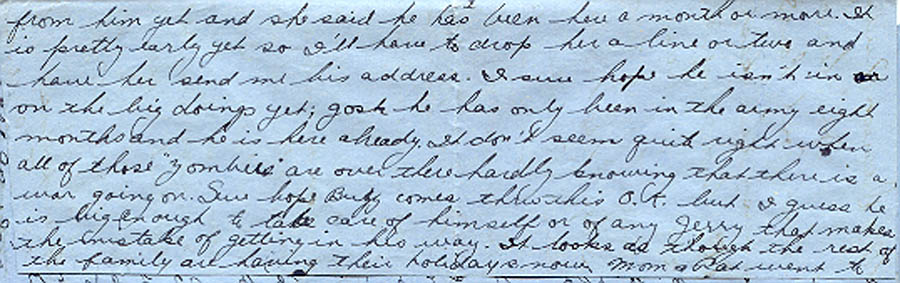 from him yet and she said he has been here a month or more. It
is pretty early yet so I'll have to drop her a line or two and
have her send me his address. I sure hope he isn't in
on the big doings yet; gosh he has only been in the army eight
months and he is here already. It don't seem quit right when
all of those "zombies" are over there hardly knowing that there is a
war going on. Sure hope comes thru this O.K. but I guess he
is big enough to take care of himself or of any Jerry that makes
the mistake of getting in his way. It looks as though the rest of
the family are having their holidays now. Mom & Pat went to